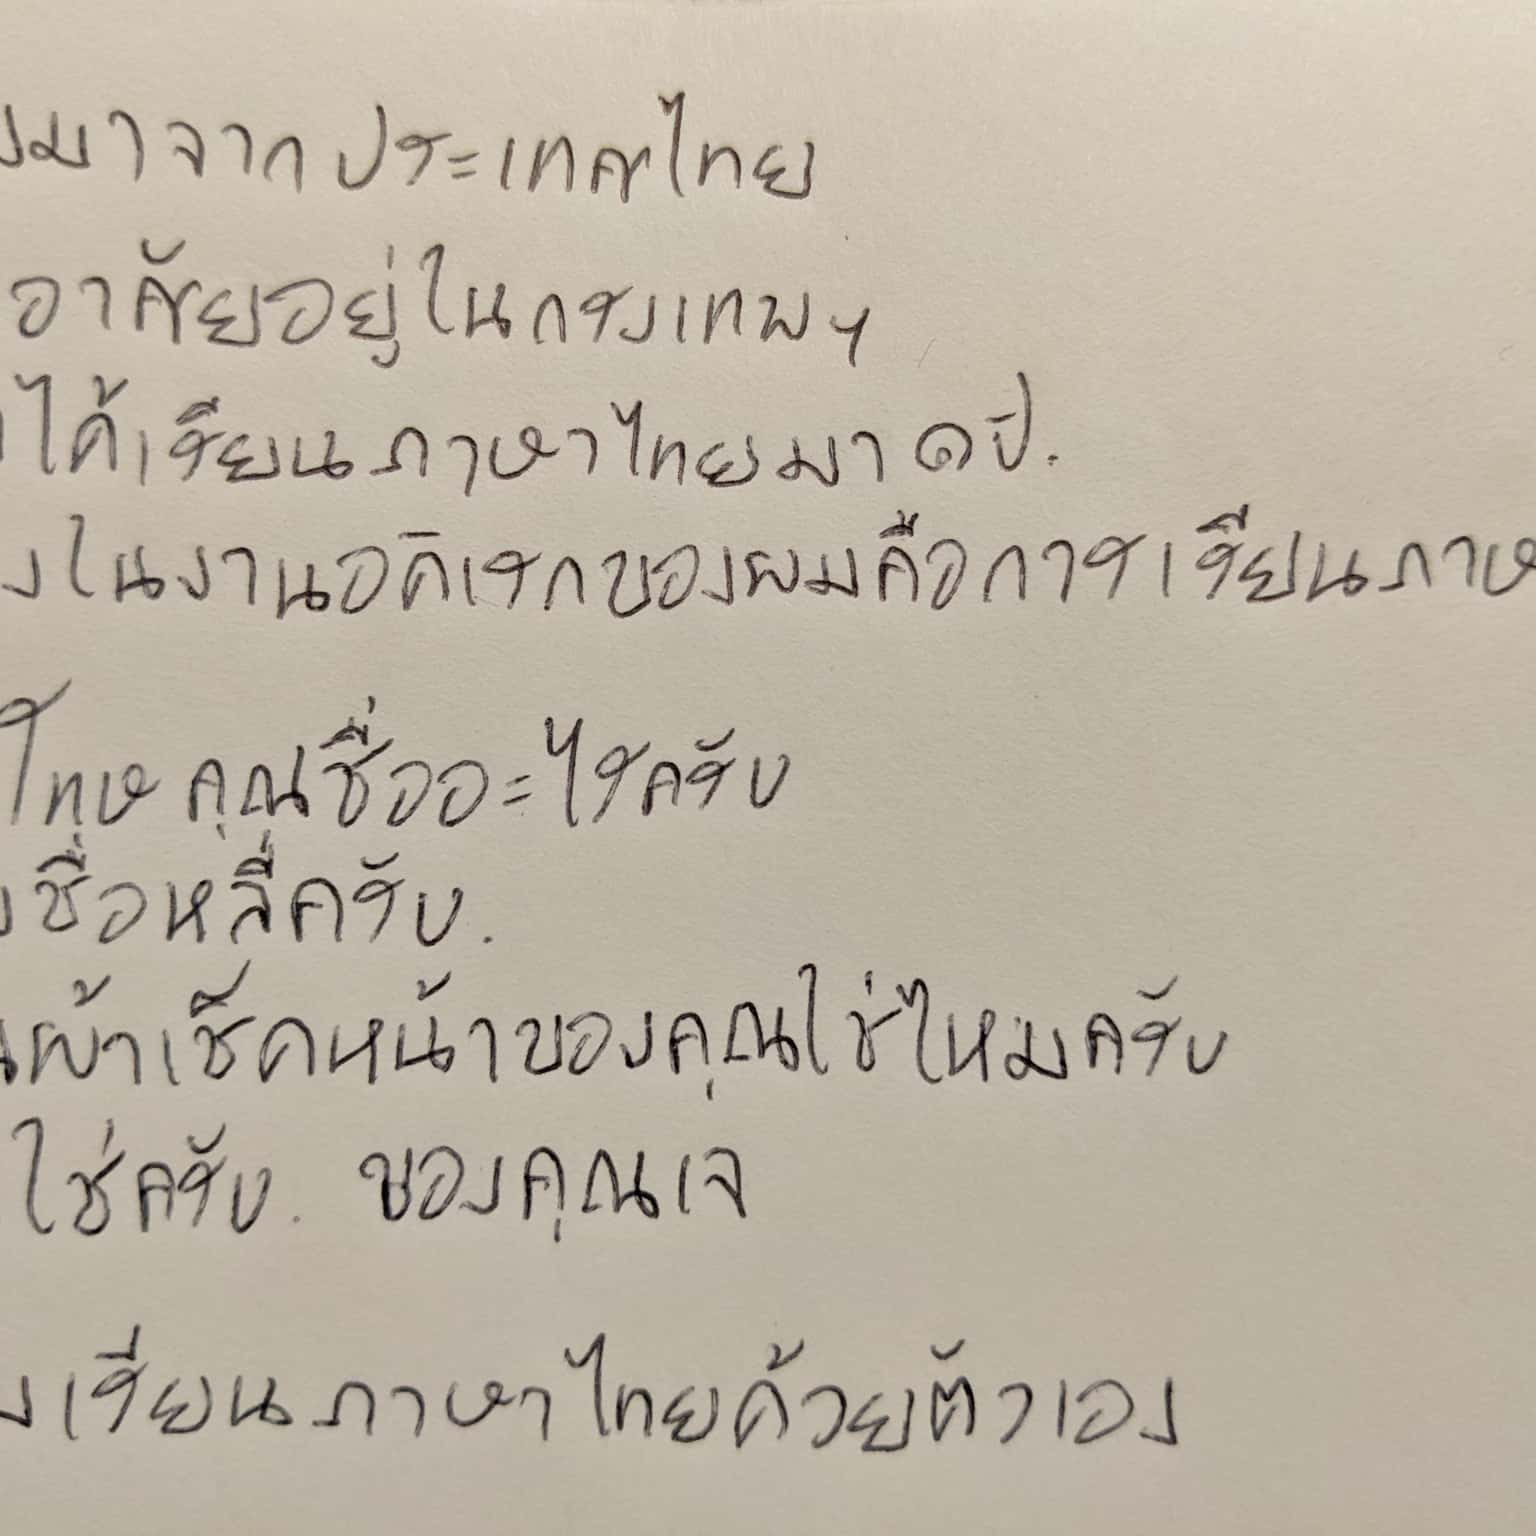 มาจากประเทศไทย
อาศัยอยู่ในกรงเทพฯ
ได้เรียนภาษาไทยมา ๑ปี.
ในงานอดิเรกของผมคือการเรียนภาษ
โทษ คุณชื่ออะไรครับ
ชื่อหลี่ครับ.
ผ้าเช็ดหน้าของคุณใช่ไหมครับ
ใช่ครับ. ของคุณเจ
เรียนภาษาไทยด้วยตัวเอง